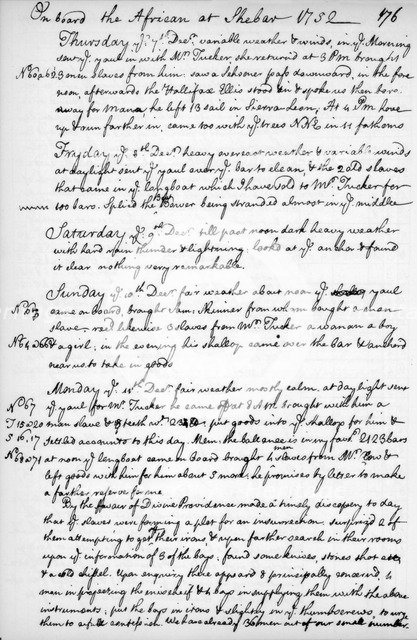 On board the African at Shebar 1752 176
Thursday ye 7th Decr variable weather & winds, in ye Morning
sent ye yaul in with Mr Tucker, she returned at 3 PM brought
No 60, 61, 62 3 men slaves from him: saw a schooner pass downward, in the fore
noon, afterwards the Hallifax Ellis stood in & spoke us then bore
away for Mana, he left 13 sail in Sierra leon, At 4 PM hove
up & run farther in, came too with ye trees NNE in 11 fathoms
Fryday ye 8th Decr heavy overcast weather & variable winds
at daylight sent ye yaul over ye bar to clean, & the 2 old slaves
that came in ye longboat which I have sold to Mr Tucker for
100 bars. Spliced the Bt Bower being stranded almost in ye middle
Saturday ye 9th Decr till past noon dark heavy weather
with hard rain thunder & lightning. looked at ye anchor & found
it clear nothing very remarkable.
Sunday ye 10th Decr fair weather about noon ye yaul
No 63 came on board, brought Sam: Skinner from whom bought a man
slave, reed likewise 3 slaves from Mr Tucker a woman a boy
No 64 &ca & a girl; in the evening his shallop came over the bar & anchord
near us to take in goods
Monday ye 11th Decr fair weather mostly calm. at daylight sent
No 67 ye yaul for Mr Tucker he came off at 8 AM brought with him a
T 15 a 20 man slave & teeth wt put goods into ye shallop for him &
S 16, 17 settled accounts to this day Mem: the balance is in my favr 2123 bars
No 68 a 71 at noon ye longboat came on board brought 4 men slaves from Mr &
left goods with him for about 5 more; he promises by letter to make
a farther reserve for me
By the favour of Divine Providence made a timely discovery to day
that ye slaves were forming a plot for an insurrection. surprized 2 of
them attempting to get off their irons, & upon farther search in their rooms
upon ye information of 3 of the boys, found some knives, stones shot &ca
& a cold chissel. Upon enquiry there appeard 8 principally concernd,
in preparing the mischief & 4 boys in supplying them with the above
instruments; put the boys in irons & slightly in ye thumbscrews, to urge
them to a full confession. We have already 36 men out of our small number